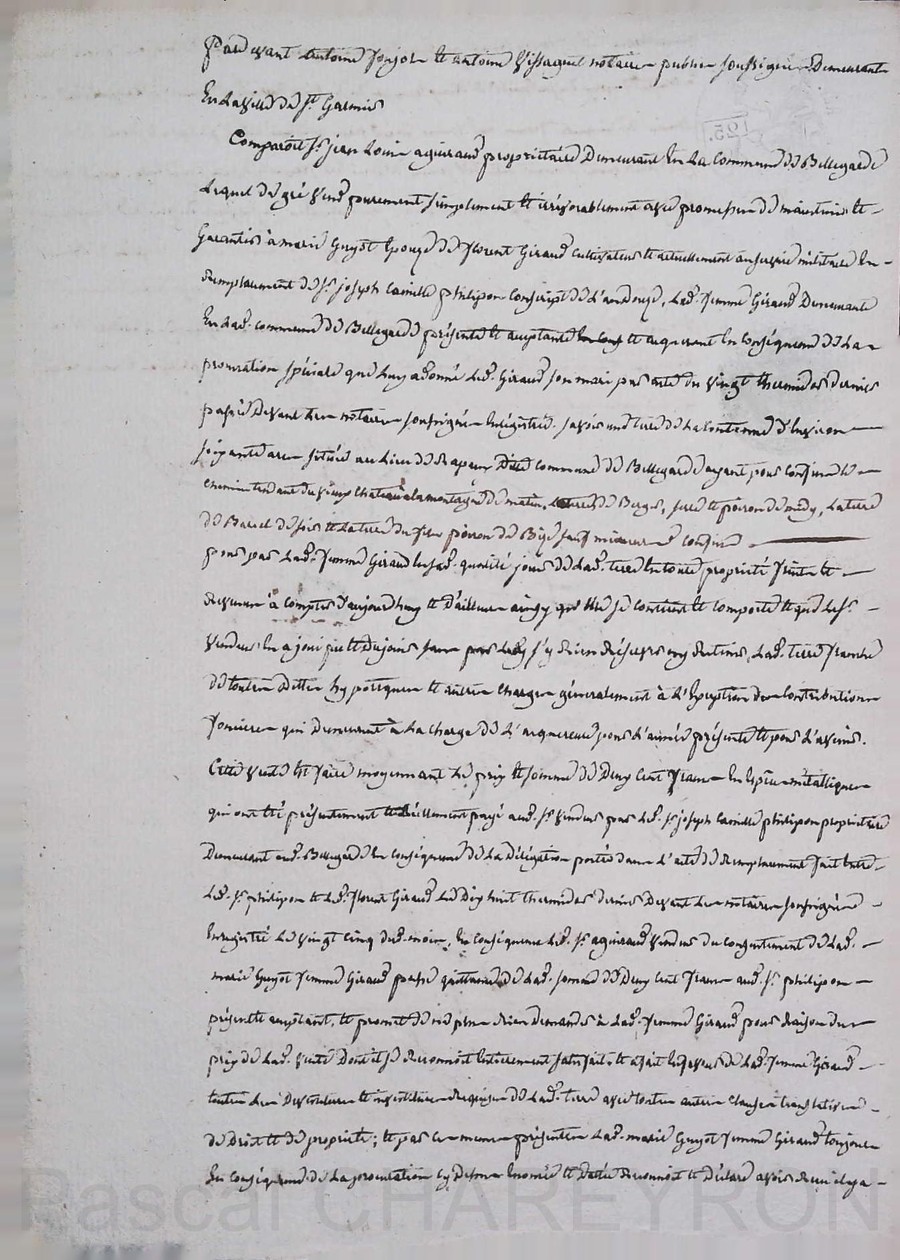 Pardevant Antoine Jonjon et Antoine Vissaguet notaires publics soussignés Demeurants
En La ville de St. Galmier
Comparoit Sr. jean Louis agniraud propriétaire Demeurant En La Commune de Bellegarde
Lequel de gré Vend purement simplement et irrévocablement avec promesse de maintenir et
Garantir à marie Guyot Epouze de florent Giraud cultivateur et actuellement au service militaire En
Remplacement de Sr. joseph Camille philipon Conscript de L'an douze, Lad. femme Giraud Demeurante
En Lad. commune de Bellegarde présente et acceptante et acquerant En Conséquence de La
procuration spéciale que Luy a Donné Led. Giraud son mari par acte du vingt thermidor dernier
passé Devant Les notaires soussignés Enrégistré. savoir une terre de La Contenue d'Environ
soixante ares située au Lieu de Dite commune de Bellegarde ayant pour confins Le
chemin tendant du vieux Chateau à la montagne de matin, terre de Berger, sur le poiron de midy, La terre
de de soir et La terre du Sr. poiron de Bize sauf meilleurs confins
pour par Lad. femme Giraud En Lad. qualité jouir de Lad. terre En toute propriété fruits et
Revenus à compter d'aujourd'huy et D'ailleurs ainsy qu'elle se contient et comporte et que Led. Sr.
Vendeur En a joui peu et Du jouir sans par Luy s'y Rien Réserver ny Retenir, Lad. terre franche
de toutes Dettes hypotéques et autres charges généralement à L'Exception des Contributions
foncieres qui Demeurent à La charge de L'acquereuse pour L'année présente et pour L'avenir.
Cette vente est faite moyennant Le prix et somme de Deux Cent francs En Espèces métalliques
qui ont été présentement et réellement payé aud. Sr. Vendeur par Led. Sr. joseph Camille philipon propriétaire
Demeurant aud. Bellegarde En Conséquence de La Délégation portée dans L'acte de Remplacement fait Entre
Led. Sr. philipon et Led. florent Giraud Le Dix huit thermidor dernier Devant Les notaires soussignés
Enregistré Le vingt Cinq dud. mois, En Conséquence Led. Sr. agniraud Vendeur du consentement de Lad.
marie Guyot femme Giraud passe quittance de Lad. somme de Deux Cent francs aud. Sr. philipon
présent et acceptant, et promet de ne plus Rien Demander à Lad. femme Giraud pour Raison du
prix de Lad. vente Dont il se Reconnoit Entierement satisfait et a fait En faveur de Lad. femme Giraud
toutes Les Devestitures et investitures Requises de Lad. terre avec toutes autres clauses translatives
de Droit et de propriété; et par ces mêmes présentes Lad. marie Guyot femme Giraud toujours
En Conséquence de La procuration cy Dessus Enoncée et Dattée Reconnoit et Déclare avoir Reçu il y a
Pascal CHAREYRON